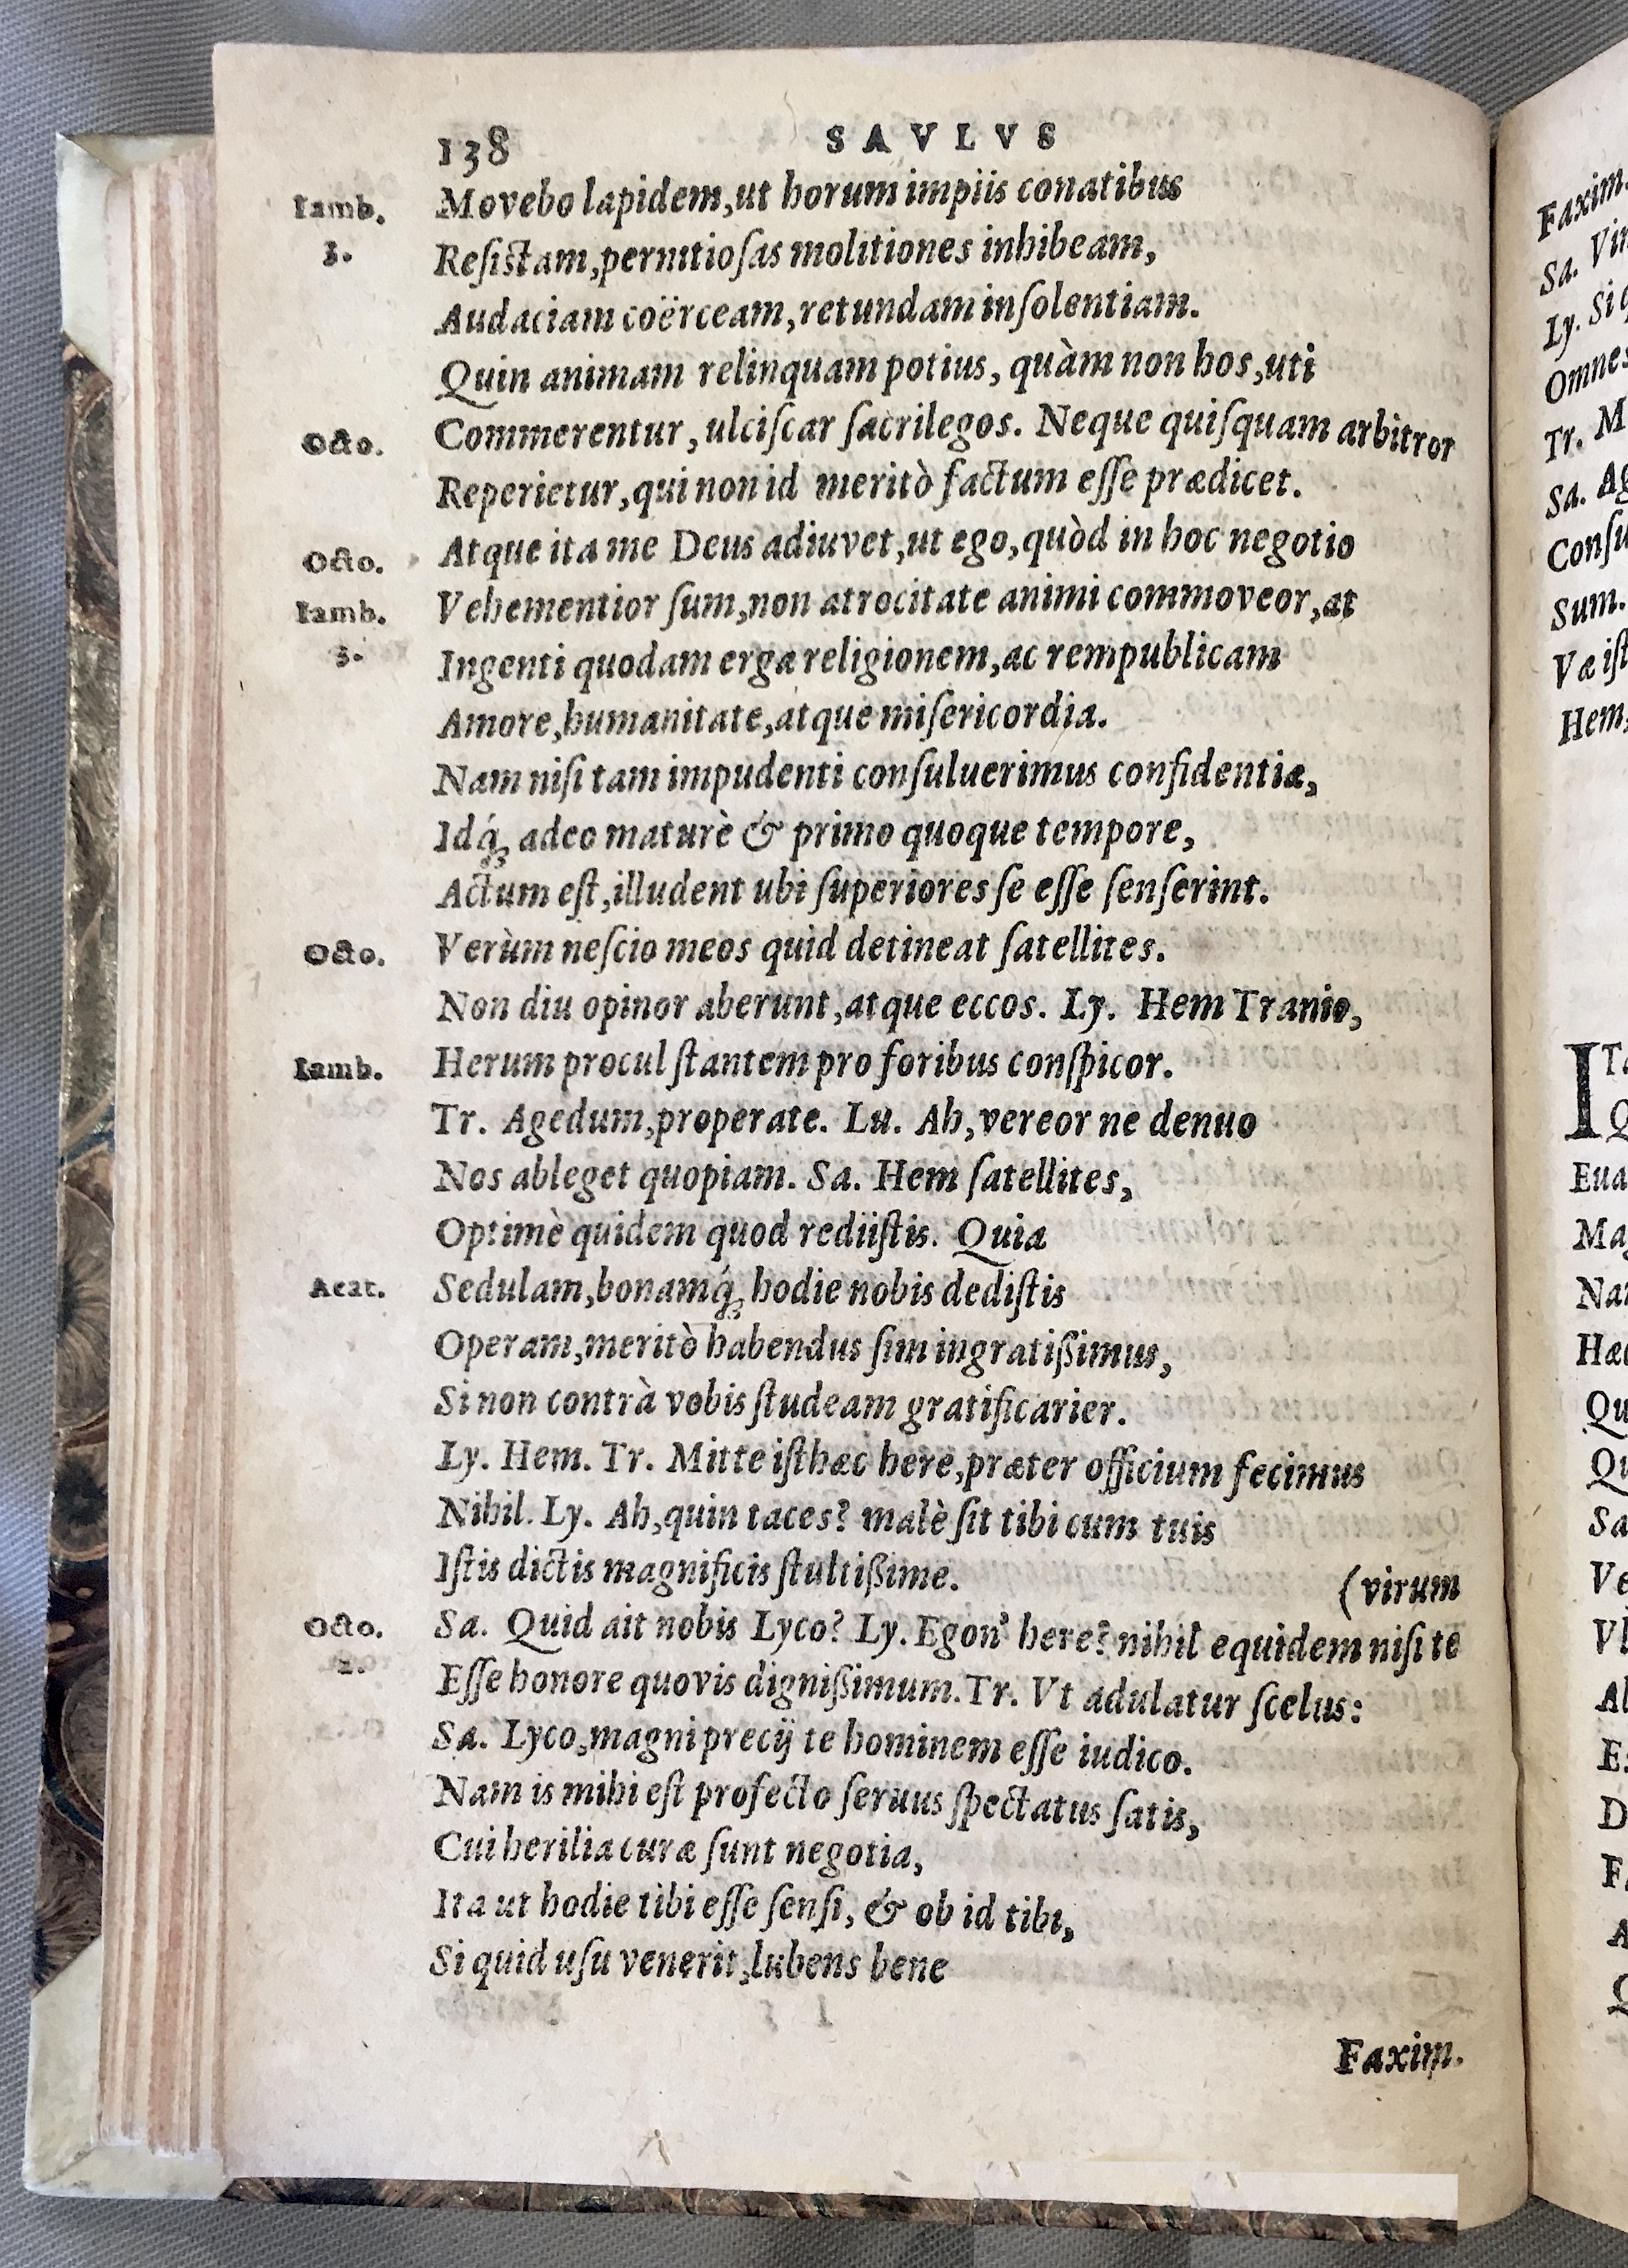 138 SAVLVS
Iamb. Movebo lapidem,ut horum impiis conatibus
3. Reſiſtam,pernitioſas molitiones inhibeam,
Audaciam coërceam,retundam inſolentiam.
Quin animam relinquam potius, quàm non hos,uti
Octo. Commerentur, ulciſcar ſacrilegos. Neque quiſquam arbitror
Reperietur,qui non id meritò factum eſſe prædicet.
Octo. Atque ita me Deus adiuvet,ut ego,quòd in hoc negotio
Iamb. Vehementior ſum,non atrocitate animi commoveor,at
3. Ingenti quodam erga religionem,ac rempublicam
Amore,humanitate,atque miſericordia.
Nam niſi tam impudenti conſuluerimus confidentiæ,
Idq́ꝫ adeo maturè & primo quoque tempore,
Actum eſt,illudent ubi ſuperiores ſe eſſe ſenſerint.
Octo. Verùm neſcio meos quid detineat ſatellites.
Non diu opinor aberunt,atque eccos. Ly. Hem Tranio,
Iamb. Herum procul ſtantem pro foribus conſpicor.
Tr. Agedum,properate. Lu. Ah,vereor ne denuo
Nos ableget quopiam. Sa. Hem ſatellites,
Optimè quidem quod rediiſtis. Quia
Acat. Sedulam,bonamq́ꝫ hodie nobis dediſtis
Operam,meritò habendus ſim ingratiſſimus,
Si non contrà vobis ſtudeam gratificarier.
Ly. Hem. Tr. Mitte iſthæc here,præter officium fecimus
Nihil. Ly. Ah,quin taces? malè ſit tibi cum tuis
Iſtis dictis magnificis ſtultißime. (virum
Octo. Sa. Quid ait nobis Lyco? Ly. Egon' here? nihil equidem niſi te
2. Eſſe honore quovis digniſſimum. Tr. Vt adulatur ſcelus:
Sa. Lyco,magni precij te hominem eſſe iudico.
Nam is mihi eſt profecto ſeruus ſpectatus ſatis,
Cui herilia curæ ſunt negotia,
Ita ut hodie tibi eſſe ſenſi, & ob id tibi,
Si quid uſu venerit,lubens bene
Faxim.
Faxim.
Sa.
Ly. Si
Omnes
Tr. M
Sa.
Sum.
Væ
Hem,